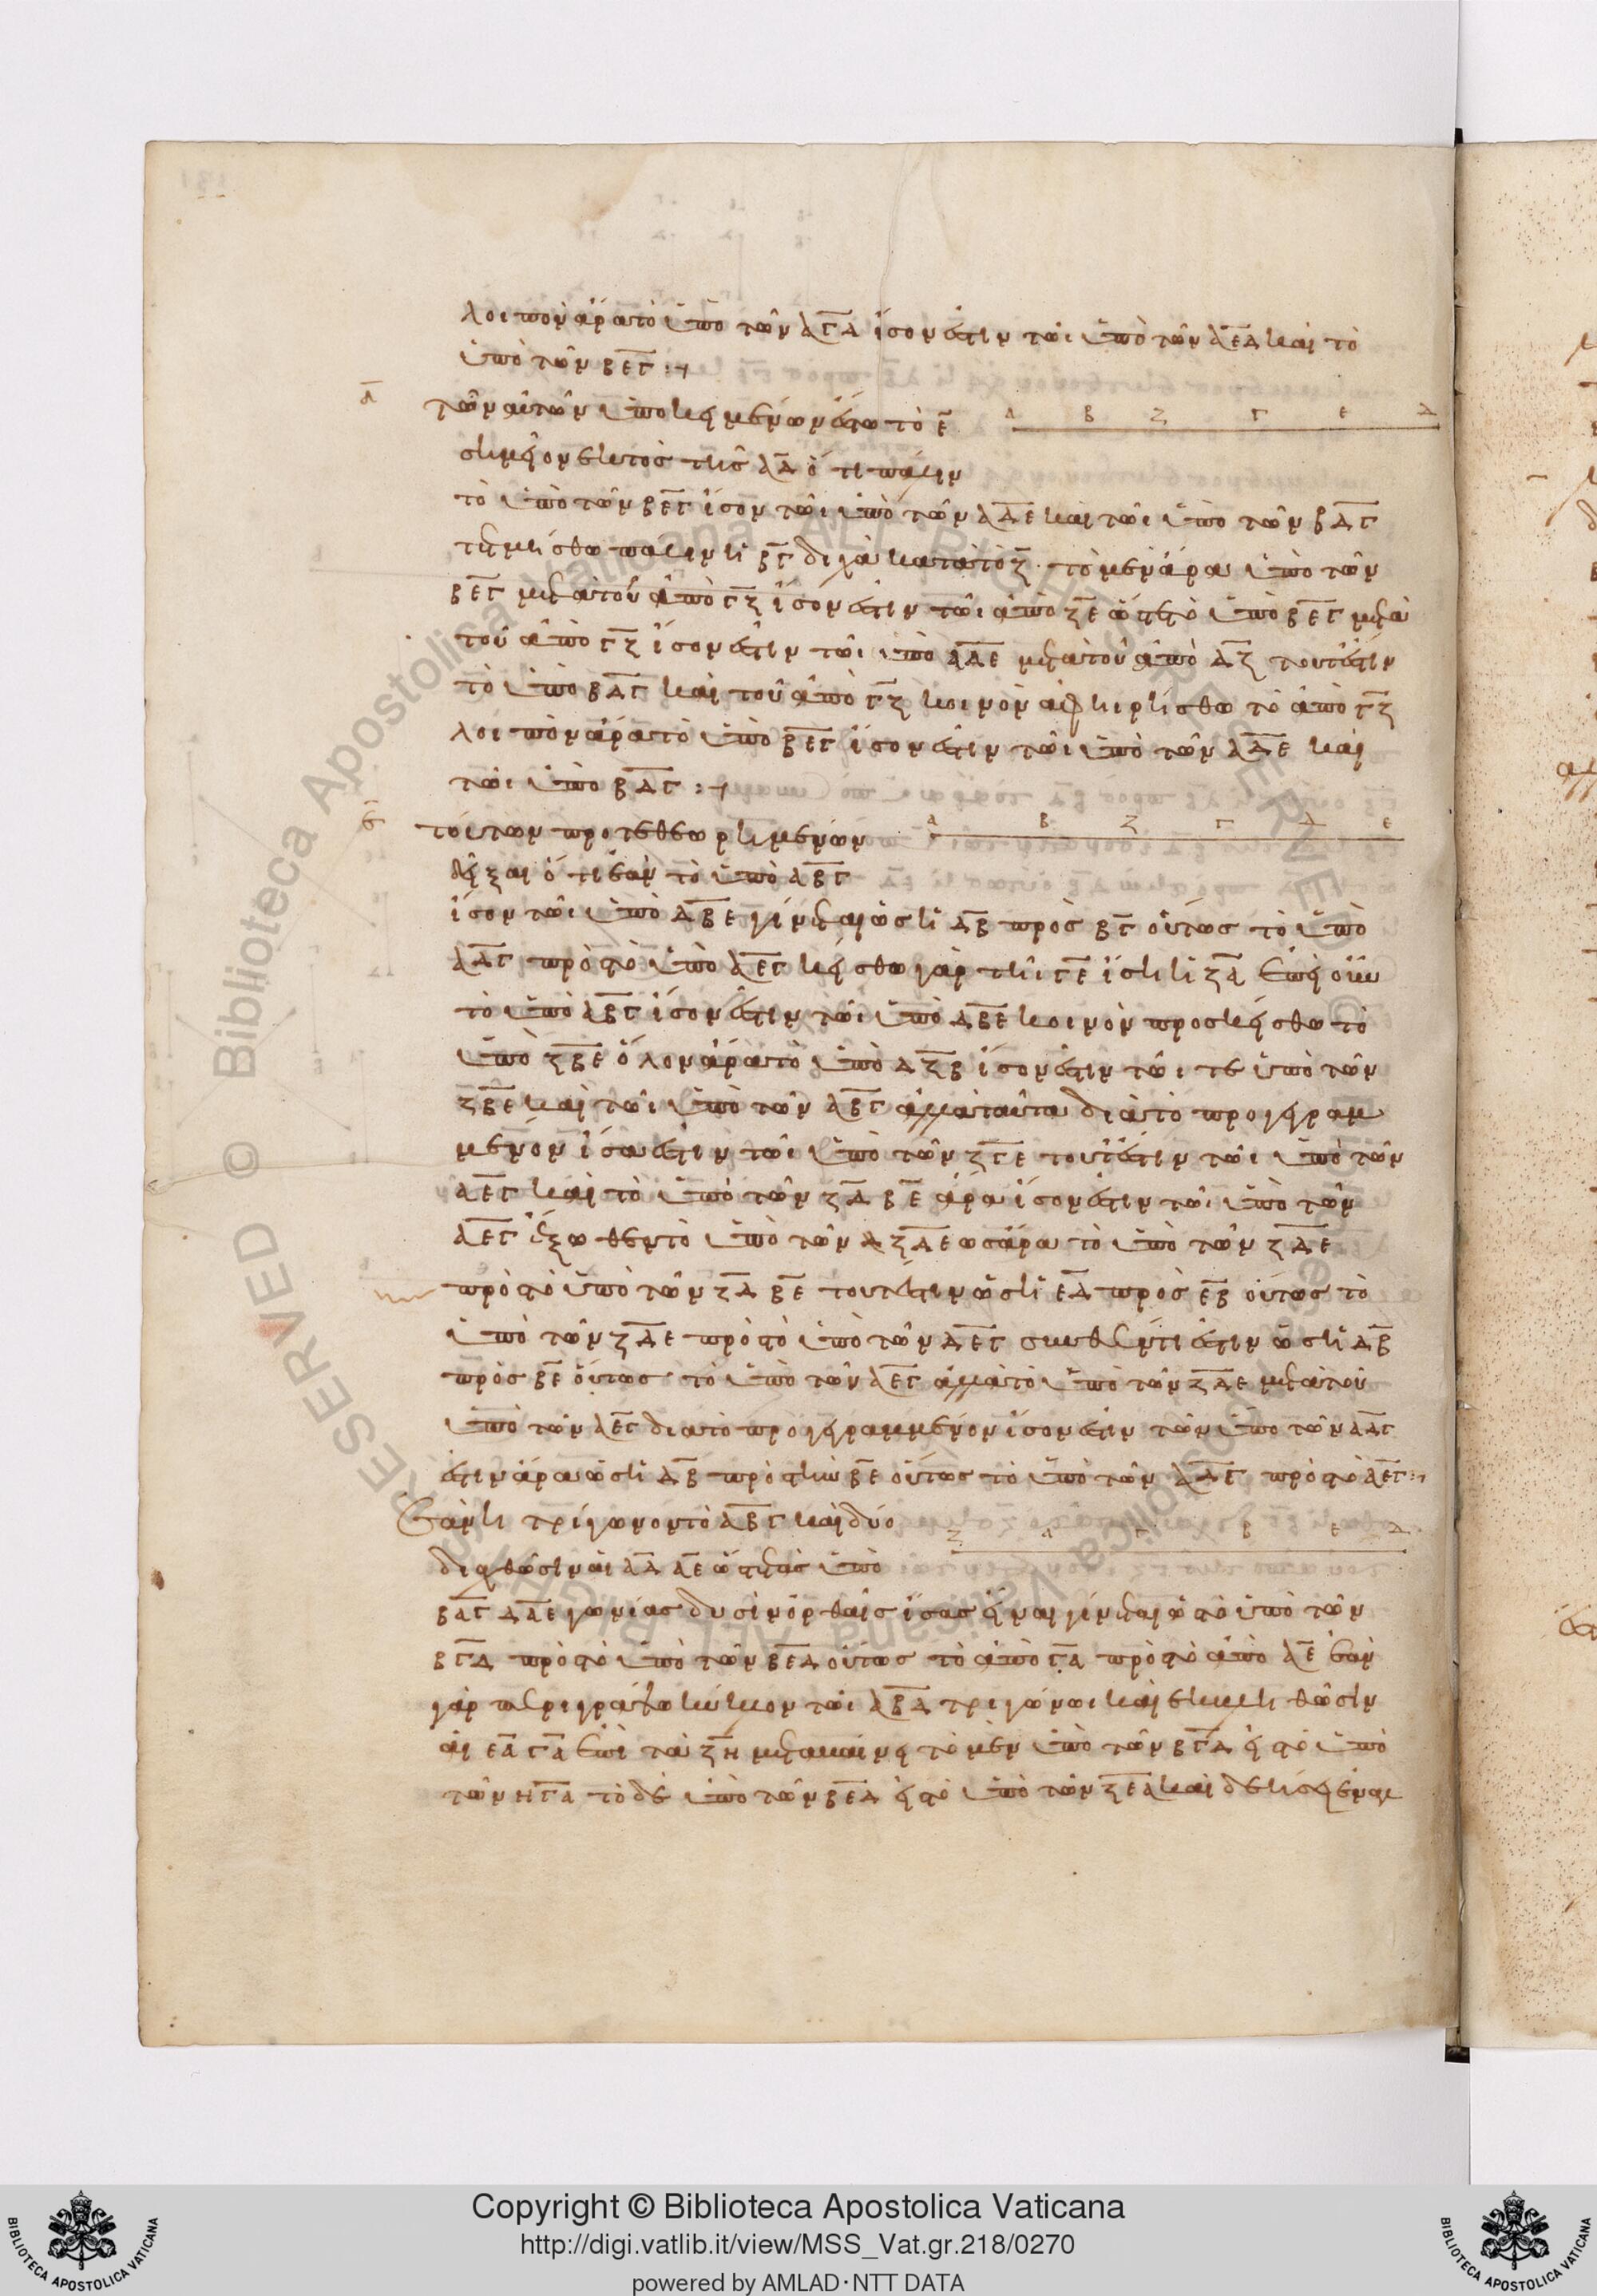 λοιπὸν ἄρα τὸ ὑπὸ τῶν ΑΓΔ ἴσον ἐστὶν τῶι ὑπὸ τῶν ΑΕΔ καὶ τὸ
ὑπὸ τῶν ΒΕΓ :~
τῶν αὐτῶν ὑποκειμένων ἔστω τὸ Ε
Α Β Ζ Γ Ε Δ
σημεῖον ἐκτὸς τῆς ΑΔ ὅτι πάλιν
τὸ ὑπὸ τῶν ΒΕΓ ἴσον τῶι ὑπὸ τῶν ΑΔΕ καὶ τῶι ὑπὸ τῶν ΒΔΓ
τετμήσθω πάλιν ἡ ΒΓ δίχα κατὰ τὸ Ζ τὸ μὲν ἄρα ὑπὸ τῶν
ΒΕΓ μετὰ τοῦ ἀπὸ ΓΖ ἴσον ἐστὶν τῶι ἀπὸ ΖΕ ὥστε τὸ ὑπὸ ΒΕΓ μετὰ
τοῦ ἀπὸ ΓΖ ἴσον ἐστὶν τῶι ὑπὸ ΑΔΕ μετὰ τοῦ ἀπὸ ΔΖ τουτέστιν
τὸ ὑπὸ ΒΔΓ καὶ τοῦ ἀπὸ ΓΖ κοινὸν ἀφηρήσθω τὸ ἀπὸ ΓΖ
λοιπὸν ἄρα τὸ ὑπὸ ΒΕΓ ἴσον ἐστὶν τῶι ὑπὸ τῶν ΑΔΕ καὶ
τῶι ὑπὸ ΒΔΓ :~
τούτων προτεθεωρημένων
Α Β Ζ Γ Δ Ε
δεῖξαι ὅτι ἐὰν τὸ ὑπὸ ΑΒΓ
ἴσον τῶι ὑπὸ ΔΒΕ γίνεται ὡς ἡ ΔΒ πρὸς ΒΓ οὕτως τὸ ὑπὸ
ΑΔΓ πρὸς τὸ ὑπὸ ΑΕΓ κείσθω γὰρ τῆι ΓΕ ἴση ἡ ΖΑ ἐπεὶ οὖν
τὸ ὑπὸ ΑΒΓ ἴσον ἐστὶν τῶι ὑπὸ ΔΒΕ κοινὸν προσκείσθω τὸ
ὑπὸ ΖΒΕ ὅλον ἄρα τὸ ὑπὸ ΔΖΒ ἴσον ἐστὶν τῶι τε ὑπὸ τῶν
ΖΒΕ καὶ τῶι ὑπὸ τῶν ΑΒΓ ἀλλὰ ταῦτα διὰ τὸ προγεγραμ
μένον ἴσα ἐστὶν τῶι ὑπὸ τῶν ΖΓΕ τουτέστιν τῶι ὑπὸ τῶν
ΑΕΓ καὶ τὸ ὑπὸ τῶν ΖΔ ΒΕ ἄρα ἴσον ἐστὶν τῶι ὑπὸ τῶν
ΑΕΓ ἔξωθεν τὸ ὑπὸ τῶν ΖΔΕ ὡς ἄρα τὸ ὑπὸ τῶν ΖΔΕ
πρὸς τὸ ὑπὸ τῶν ΖΔ ΒΕ τουτέστιν ὡς ἡ ΕΔ πρὸς ΕΒ οὕτως τὸ
ὑπὸ τῶν ΖΔΕ πρὸς τὸ ὑπὸ τῶν ΑΕΓ συνθέντι ἐστὶν ὡς ἡ ΔΒ
πρὸς ΒΕ οὕτως τὸ ὑπὸ τῶν ΑΕΓ ἀλλὰ τὸ ὑπὸ τῶν ΖΔΕ μετὰ τοῦ
ὑπὸ τῶν ΑΕΓ διὰ τὸ προγεγραμμένον ἴσον ἐστὶν τῶν ὑπὸ τῶν ΑΔΓ
ἔστιν ἄρα ὡς ἡ ΔΒ πρὸς τὴν ΒΕ οὕτως τὸ ὑπὸ τῶν ΑΔΓ πρὸς τὸ ΑΕΓ :~
Ἐὰν ἦι τρίγωνον τὸ ΑΒΓ καὶ δύο
Ζ Α Γ Β Ε Δ
διαχθῶσιν αἱ ΑΔ ΑΕ ὥστε τὰς ὑπὸ
ΒΑΓ ΔΑΕ γωνίας δυσὶν ὀρθαῖς ἴσας εἶναι γίνεται ὡς τὸ ὑπὸ τῶν
ΒΓΔ πρὸς τὸ ὑπὸ τῶν ΒΕΔ οὕτως τὸ ἀπὸ ΓΑ πρὸς τὸ ἀπὸ ΑΕ ἐὰν
γὰρ περιγράψω κύκλον τῶι ΑΒΔ τριγώνωι καὶ ἐκβληθῶσιν
αἱ ΕΑ ΓΑ ἐπὶ τὰ ΖΗ μεταβαίνει τὸ μὲν ὑπὸ τῶν ΒΓΔ εἰς τὸ ὑπὸ
τῶν ΗΓΑ τὸ δὲ ὑπὸ τῶν ΒΕΔ εἰς τὸ ὑπὸ τῶν ΖΕΑ καὶ δεήσει ἐναλ
Copyright © Biblioteca Apostolica Vaticana
http://digi.vatlib.it/view/MSS_Vat.gr.218/0270
powered by AMLAD·NTT DATA